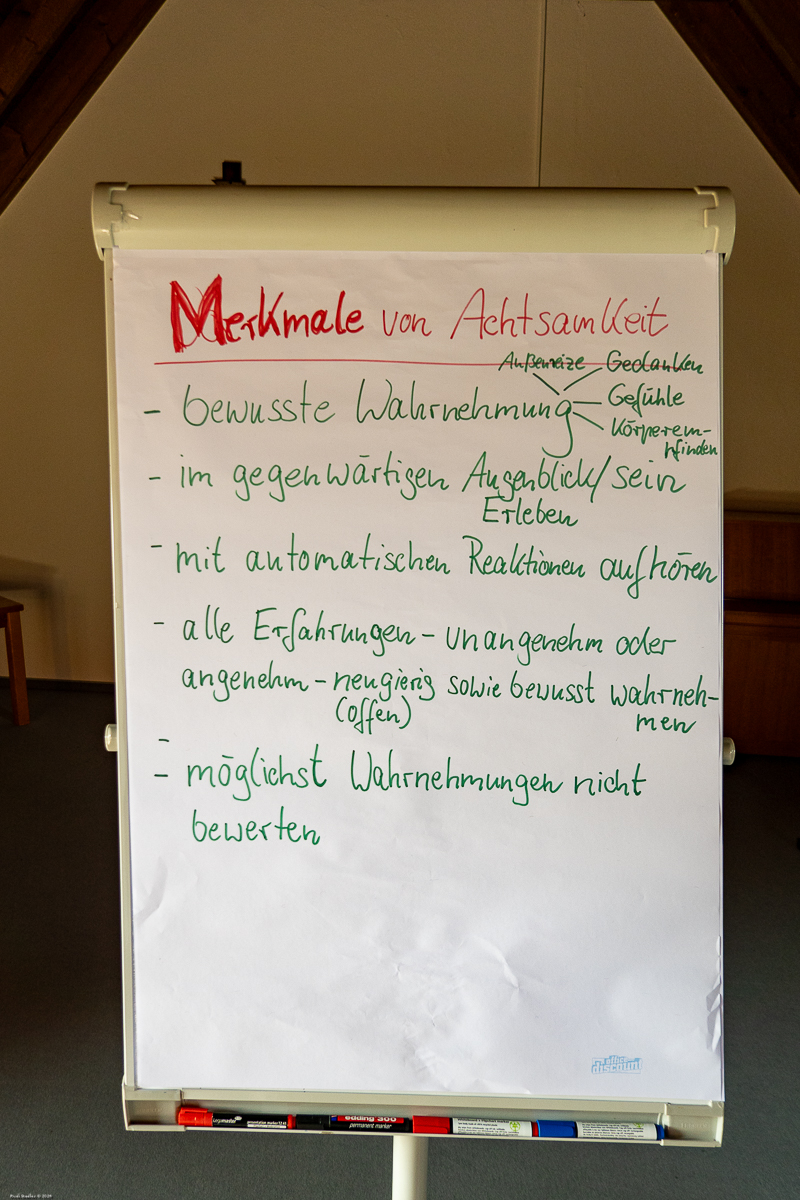 Merkmale von Achtsamkeit
Außenreize Gedanken
- bewusste Wahrnehmung
Gefühle
Körperem-
pfinden
- im gegenwärtigen Augenblick/sein
Erleben
- mit automatischen Reaktionen aufhören
- alle Erfahrungen - unangenehm oder
angenehm - neugierig sowie bewusst wahrneh-
(offen) men
- möglichst Wahrnehmungen nicht
bewerten
office
discount
edding 300
permanent marker